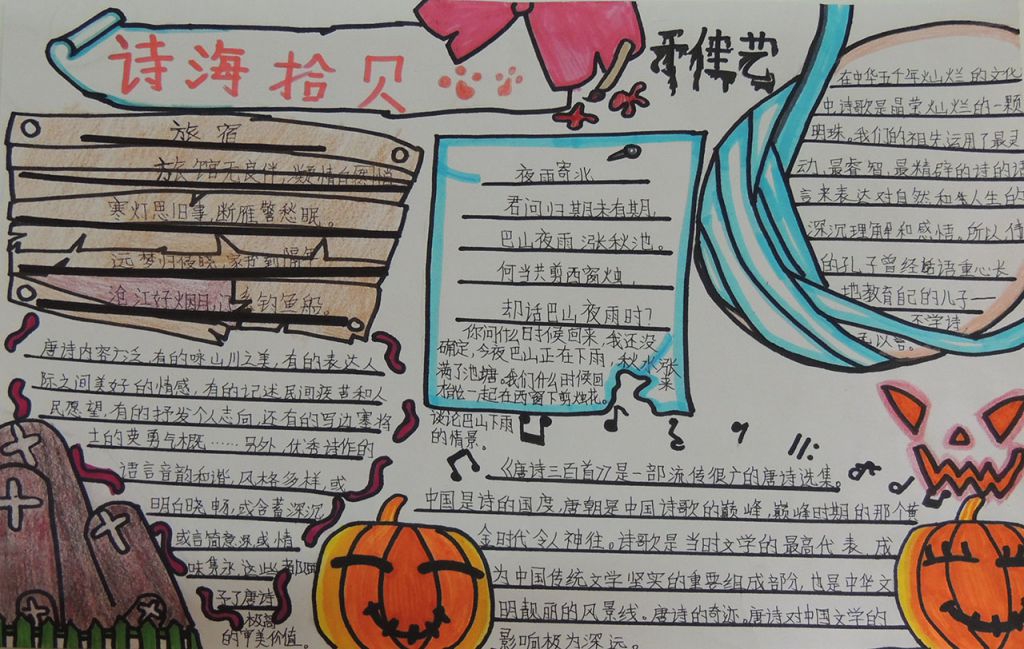 诗海拾贝
佳艺
旅宿
旅馆无良伴,凝情自悄然
寒灯思旧事,断雁警愁眠。
远梦归侵晓,家书到隔年
沧江好烟月,门系钓鱼船。
夜雨寄北
君问归期未有期,
巴山夜雨涨秋池。
何当共剪西窗烛,
却话巴山夜雨时?
你问什么日时候回来,我还没
确定,今夜巴山正在下雨,秋水涨
满了池塘。我们什么时候回来
才能一起在西窗下剪烛花。
谈论巴山下雨
的情景。
在中华五千年灿烂的文化
中诗歌是晶莹灿烂的一颗
明珠。我们的祖先运用了最灵
动、最睿智、最精辟的诗的语
言来表达对自然和人生的
深沉理解和感悟。所以
的孔子曾经语重心长
地教育自己的儿子——
不学诗
无以言。
唐诗内容广泛,有的咏山川之美,有的表达人
际之间美好的情感,有的记述民间疾苦和人
民愿望,有的抒发个人志向,还有的写边塞将
士的英勇气概……另外,优秀诗作的
语言音韵和谐,风格多样,或
明白晓畅,或含蓄深沉
或言简意赅,或情
味隽永这些都
予了唐诗
极高
的审美价值。
《唐诗三百首》是一部流传很广的唐诗选集。
中国是诗的国度,唐朝是中国诗歌的巅峰,巅峰时期的那个黄
金时代令人神往。诗歌是当时文学的最高代表,成
为中国传统文学坚实的重要组成部分,也是中华文
明靓丽的风景线。唐诗的奇迹。唐诗对中国文学的
影响极为深远。